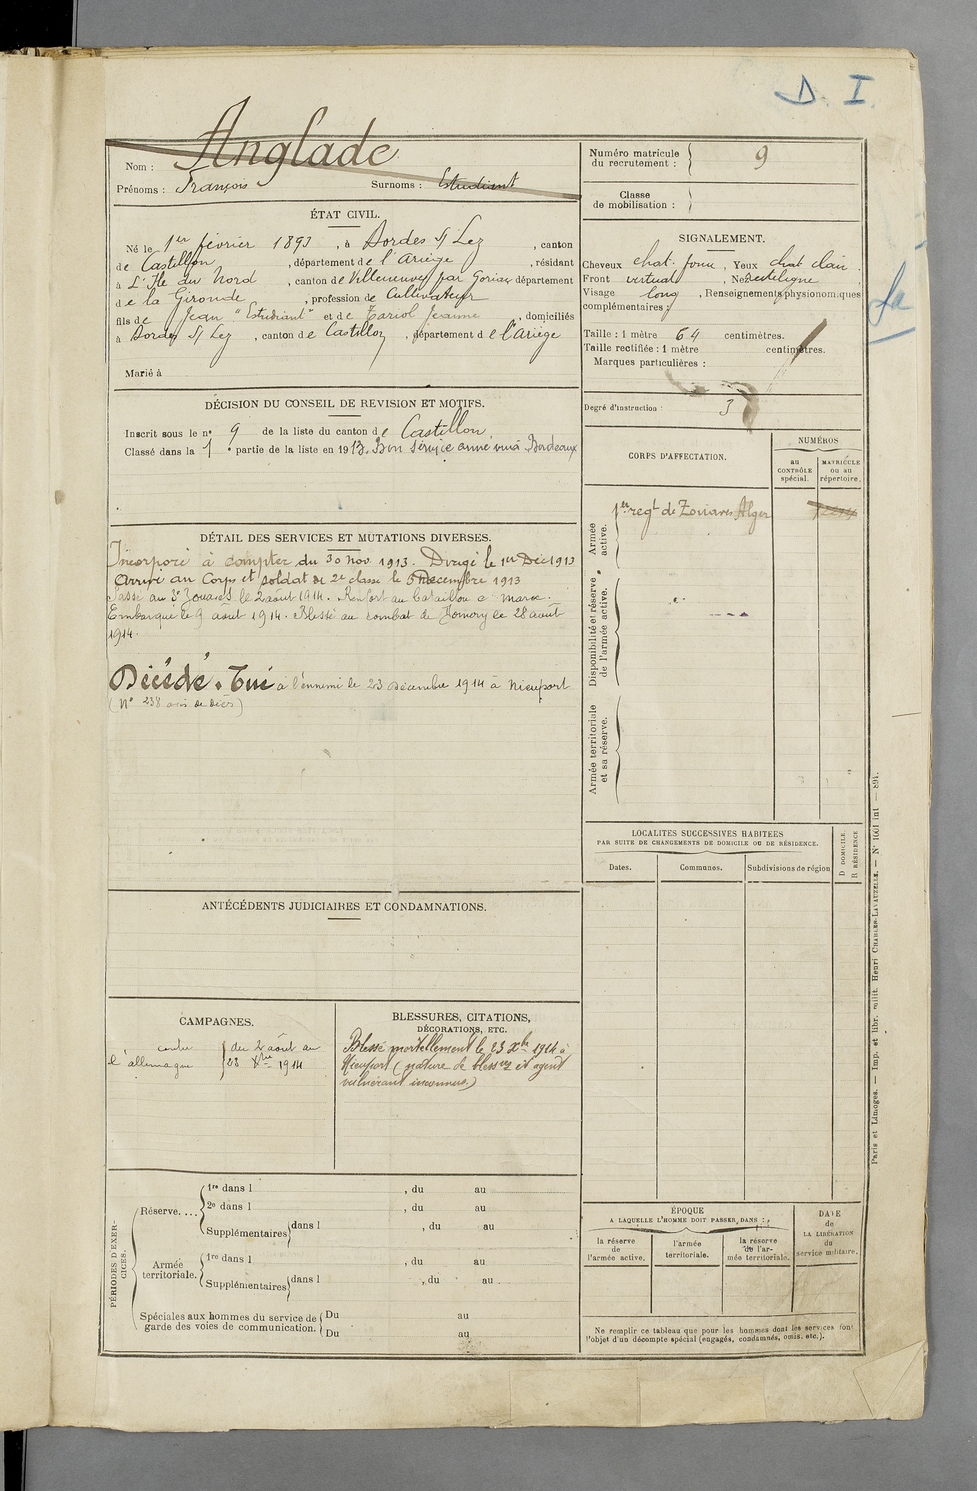 D. I.
Anglade
Nom :
Prénoms : François Surnoms : Estudiant
Numéro matricule du recrutement : 9
Classe de mobilisation :
ÉTAT CIVIL.
Né le 1er février 1893, à Bordes s/ Lez, canton
de Castillon, département de l'Ariège, résidant
à L'Ile du Nord, canton de Villeneuve par département
de la Gironde, profession de Cultivateur
fils de Jean "Estudiant" et de Jeanne, domiciliés
à Bordes s/ Lez, canton de Castillon, département de l'Ariège
Marié à
SIGNALEMENT.
Cheveux chat. , Yeux chat clair.
Front vertical, Nez rectiligne
Visage long, Renseignements physionomiques
complémentaires :
Taille : 1 mètre 64 centimètres.
Taille rectifiée : 1 mètre centimètres.
Marques particulières :
Degré d'instruction : 3
DÉCISION DU CONSEIL DE REVISION ET MOTIFS.
Inscrit sous le n° 9 de la liste du canton de Castillon.
Classé dans la 1 partie de la liste en 1913. Bon service armé Bordeaux
CORPS D'AFFECTATION.
NUMÉROS
au CONTRÔLE spécial.
MATRICULE ou au répertoire.
Armée active.
1er regt de Zouaves Alger
Disponibilité et réserve de l'armée active.
Armée territoriale et sa réserve.
DÉTAIL DES SERVICES ET MUTATIONS DIVERSES.
Incorporé à compter du 30 Nov 1913. Dirigé le 1er Déc 1913
Arrivé au Corps et soldat de 2e classe le décembre 1913
Passé au 2e Zouaves le 2 août 1914. Renfort au bataillon Maroc.
Embarqué le 9 août 1914. Blessé au combat de le 28 août
1914.
Décédé. Tué à l'ennemi le 23 Décembre 1914 à Nieuport
(N° 238 avis de décès)
LOCALITÉS SUCCESSIVES HABITÉES
PAR SUITE DE CHANGEMENTS DE DOMICILE OU DE RÉSIDENCE.
Dates. Communes. Subdivisions de région
D DOMICILE
R RÉSIDENCE
ANTÉCÉDENTS JUDICIAIRES ET CONDAMNATIONS.
CAMPAGNES.
contre du 2 août au
l'allemagne 23 Xbre 1914
BLESSURES, CITATIONS,
DÉCORATIONS, ETC.
Blessé mortellement le 23 Xbre 1914 à
Nieuport (nature de et agent
vulnérant inconnus.)
PÉRIODES D'EXERCICES.
Réserve....
1re dans l , du au
2e dans l , du au
Supplémentaires dans l , du au
Armée territoriale.
1re dans l , du au
Supplémentaires dans l , du au
Spéciales aux hommes du service de garde des voies de communication.
Du au
Du au
ÉPOQUE
A LAQUELLE L'HOMME DOIT PASSER DANS :
la réserve de l'armée active.
l'armée territoriale.
la réserve de l'armée territoriale.
DATE de LA LIBÉRATION du service militaire.
Ne remplir ce tableau que pour les hommes dont les services font
l'objet d'un décompte spécial (engagés, condamnés, omis, etc.).
Paris et Limoges. — Imp. et libr. milit. Henri CHARLES-LAVAUZELLE. — N° 1001 int — 891.